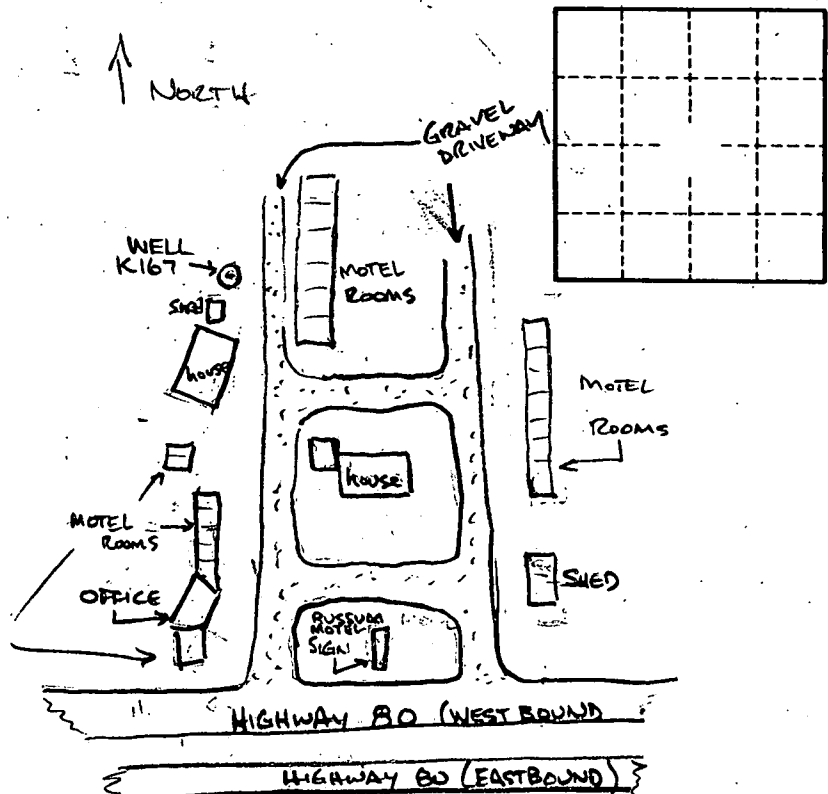 NORTH
GRAVEL
DRIVEWAY
WELL
K167
Shed
house
MOTEL
ROOMS
MOTEL
ROOMS
house
MOTEL
ROOMS
OFFICE
SHED
RUSSUM
MOTEL
SIGN
HIGHWAY 80 (WEST BOUND
HIGHWAY 80 (EASTBOUND)